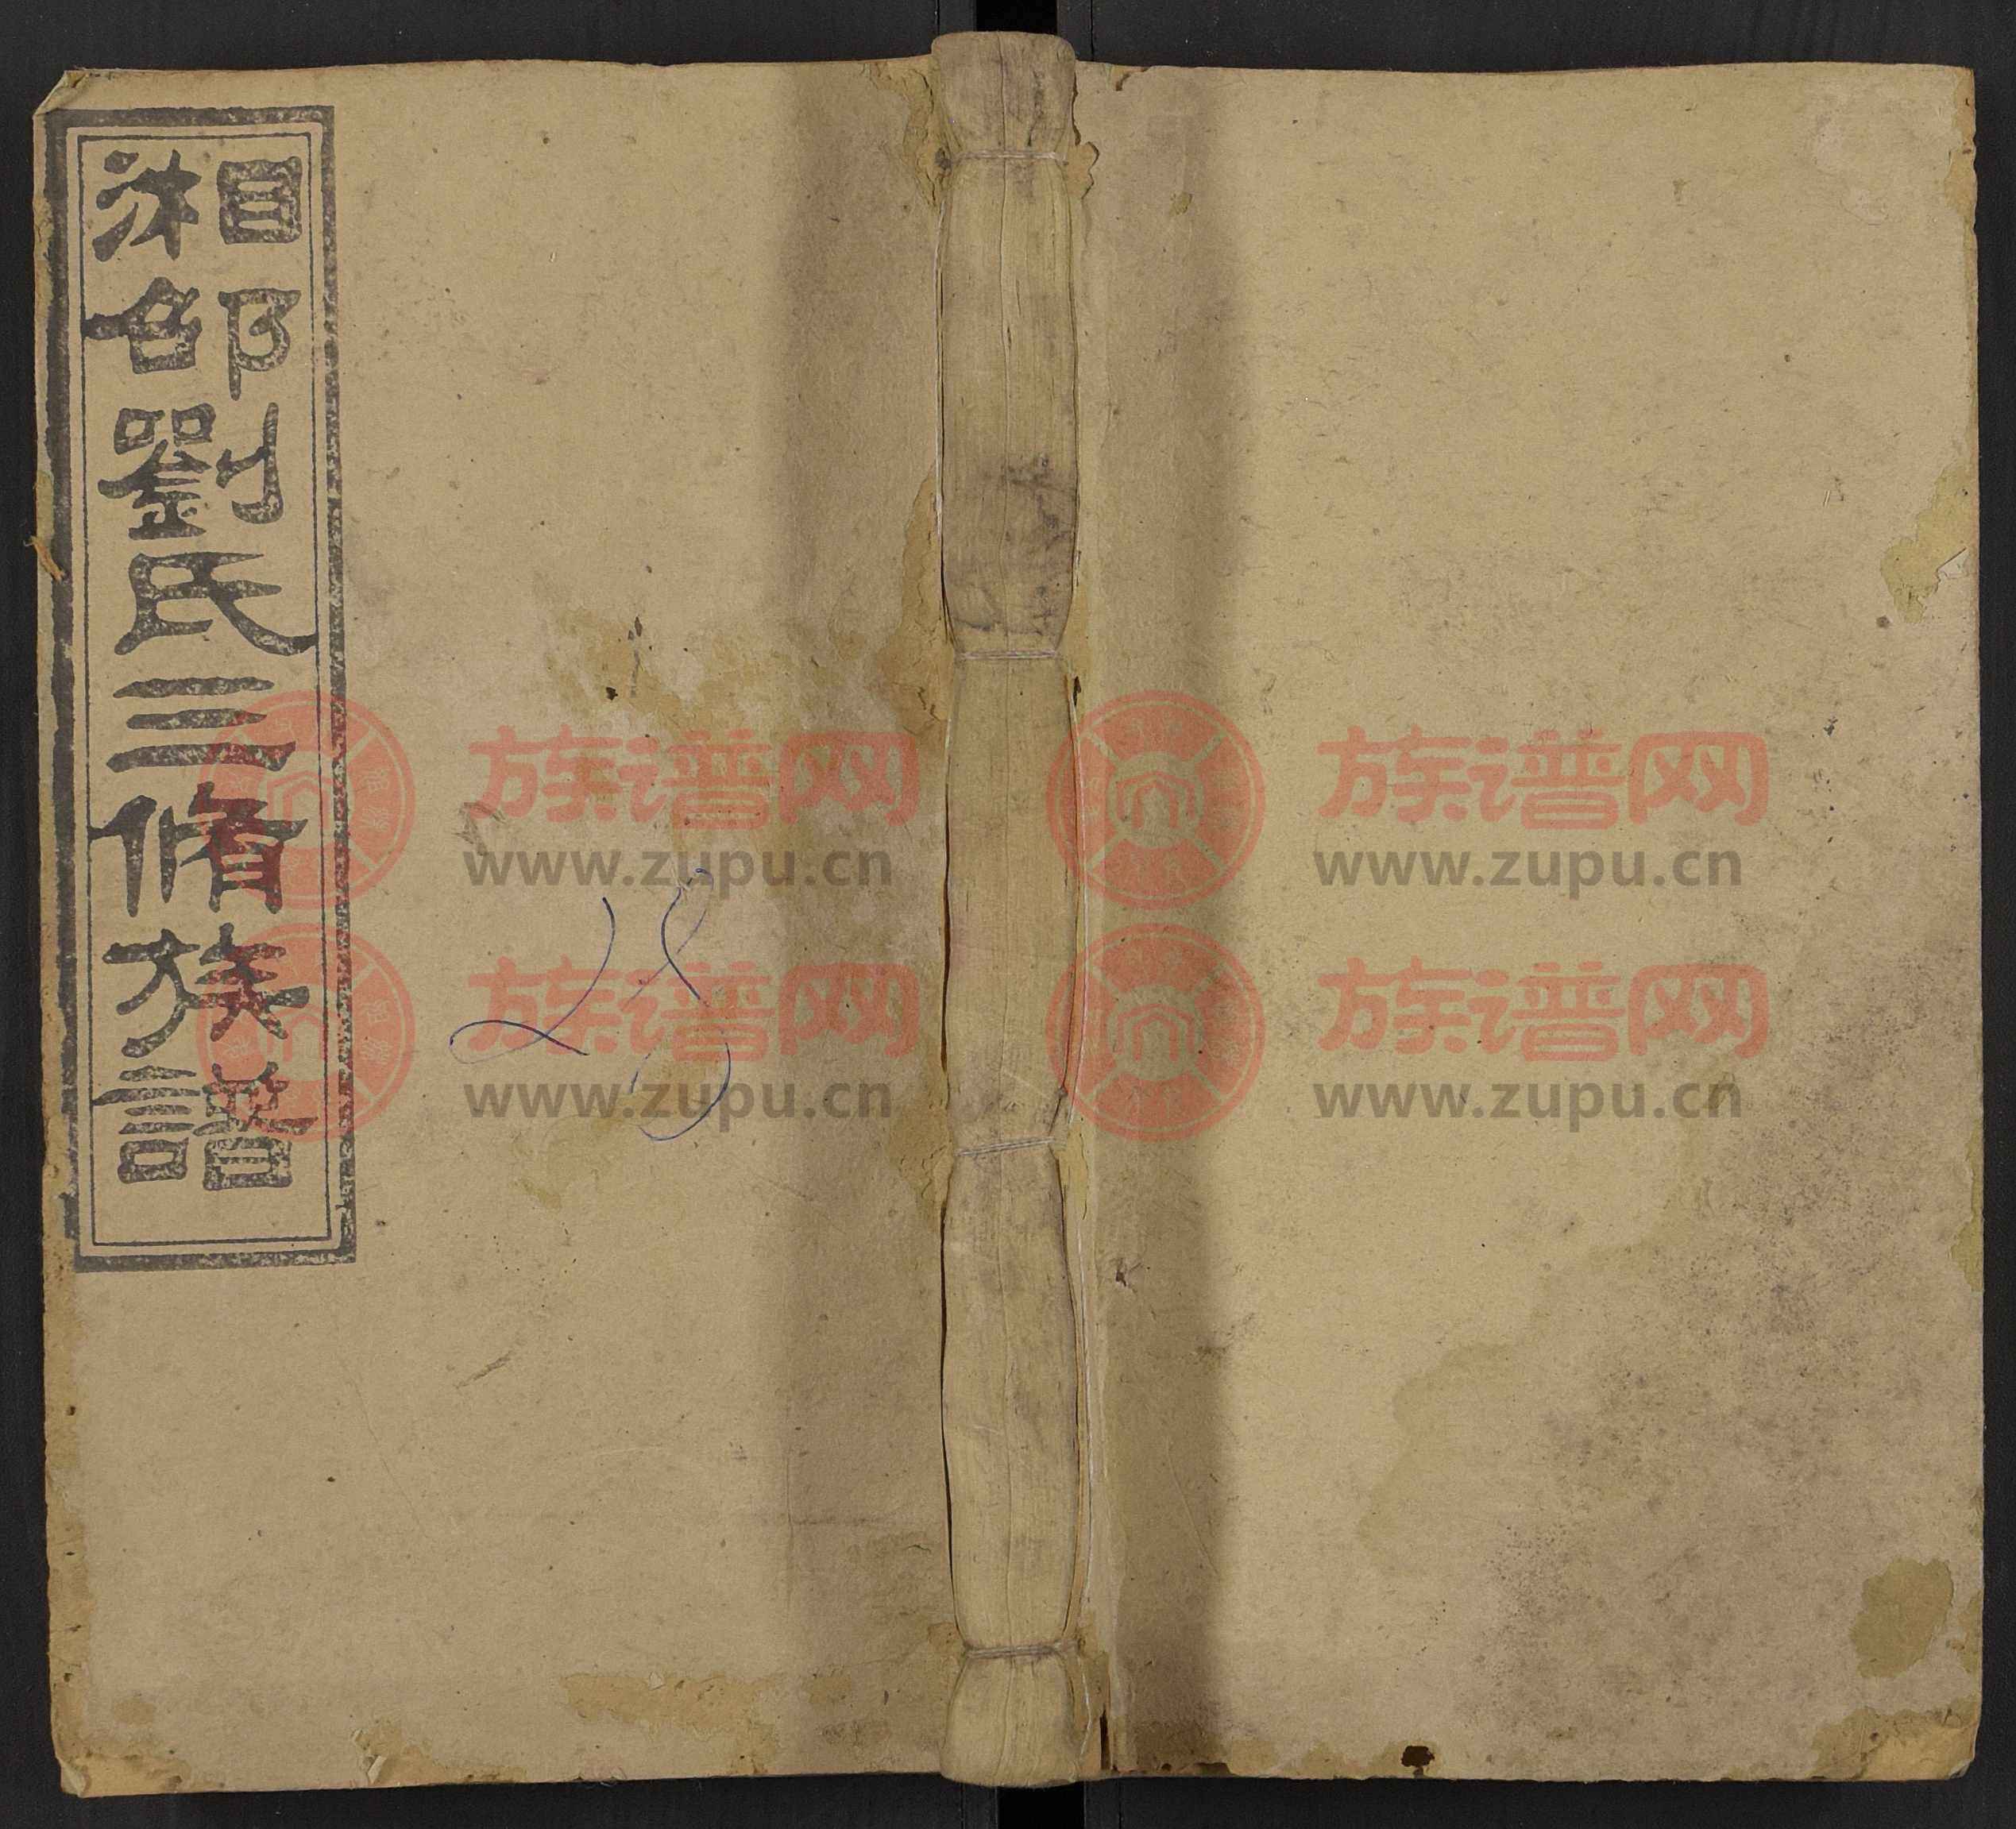 湘邵劉氏三脩族譜
28
族谱网
www.zupu.cn
族谱网
www.zupu.cn
族谱网
www.zupu.cn
族谱网
www.zupu.cn